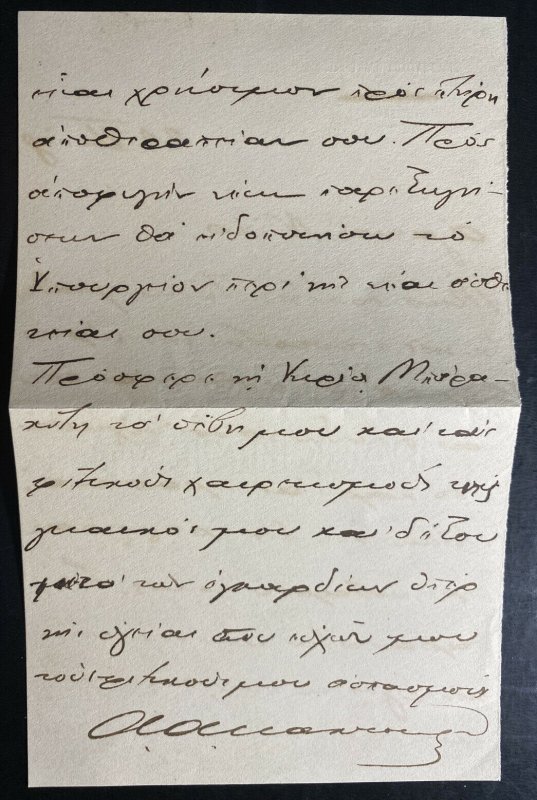 χρήσιμον πρὸς
ἀποθεραπείαν σου. Πρὸς
ἀποφυγὴν παρεξηγή-
σεων θὰ εἰδοποιήσω τὸ
Ὑπουργεῖον περὶ τῆς
σου.
Πρόσφερε τῇ Κυρίᾳ
τὰ σέβη μου καὶ τοὺς
φιλικοὺς χαιρετισμοὺς τῆς
γυναικός μου καὶ δέξου
μετὰ τῶν ἐγκαρδίων ὑπὲρ
τῆς ὑγείας σου εὐχῶν μου
τοὺς φιλικούς μου ἀσπασμούς